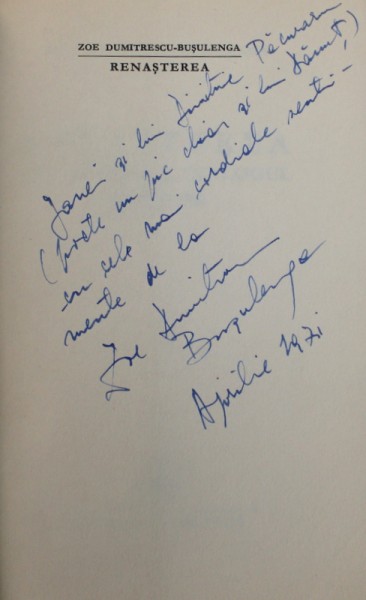 ZOE DUMITRESCU-BUȘULENGA
RENAȘTEREA
și lui Dimitrie Păcurariu
(poate un pic chiar și lui Dănuț,)
cu cele mai cordiale senti-
mente de la
Zoe Dumitrescu
Bușulenga
Aprilie 1971